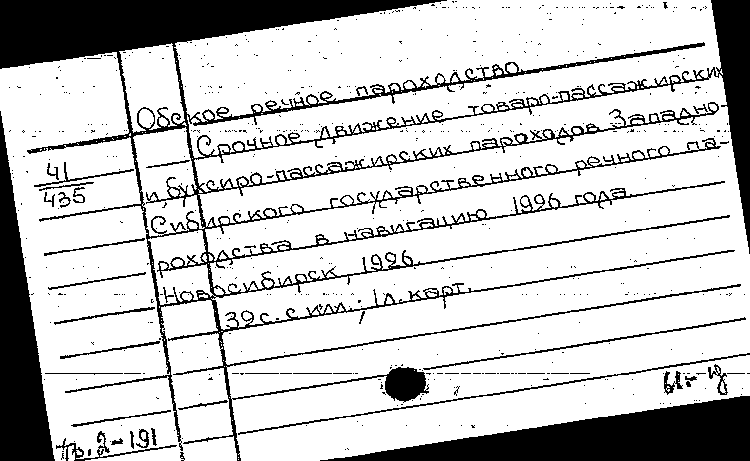 Обское речное пароходство.
Срочное движение товаро-пассажирских
41
435
и буксиро-пассажирских пароходов Западно-
Сибирского государственного речного па-
роходства в навигацию 1926 года.
Новосибирск, 1926.
39 с. с илл.; 1 л. карт.
2-191